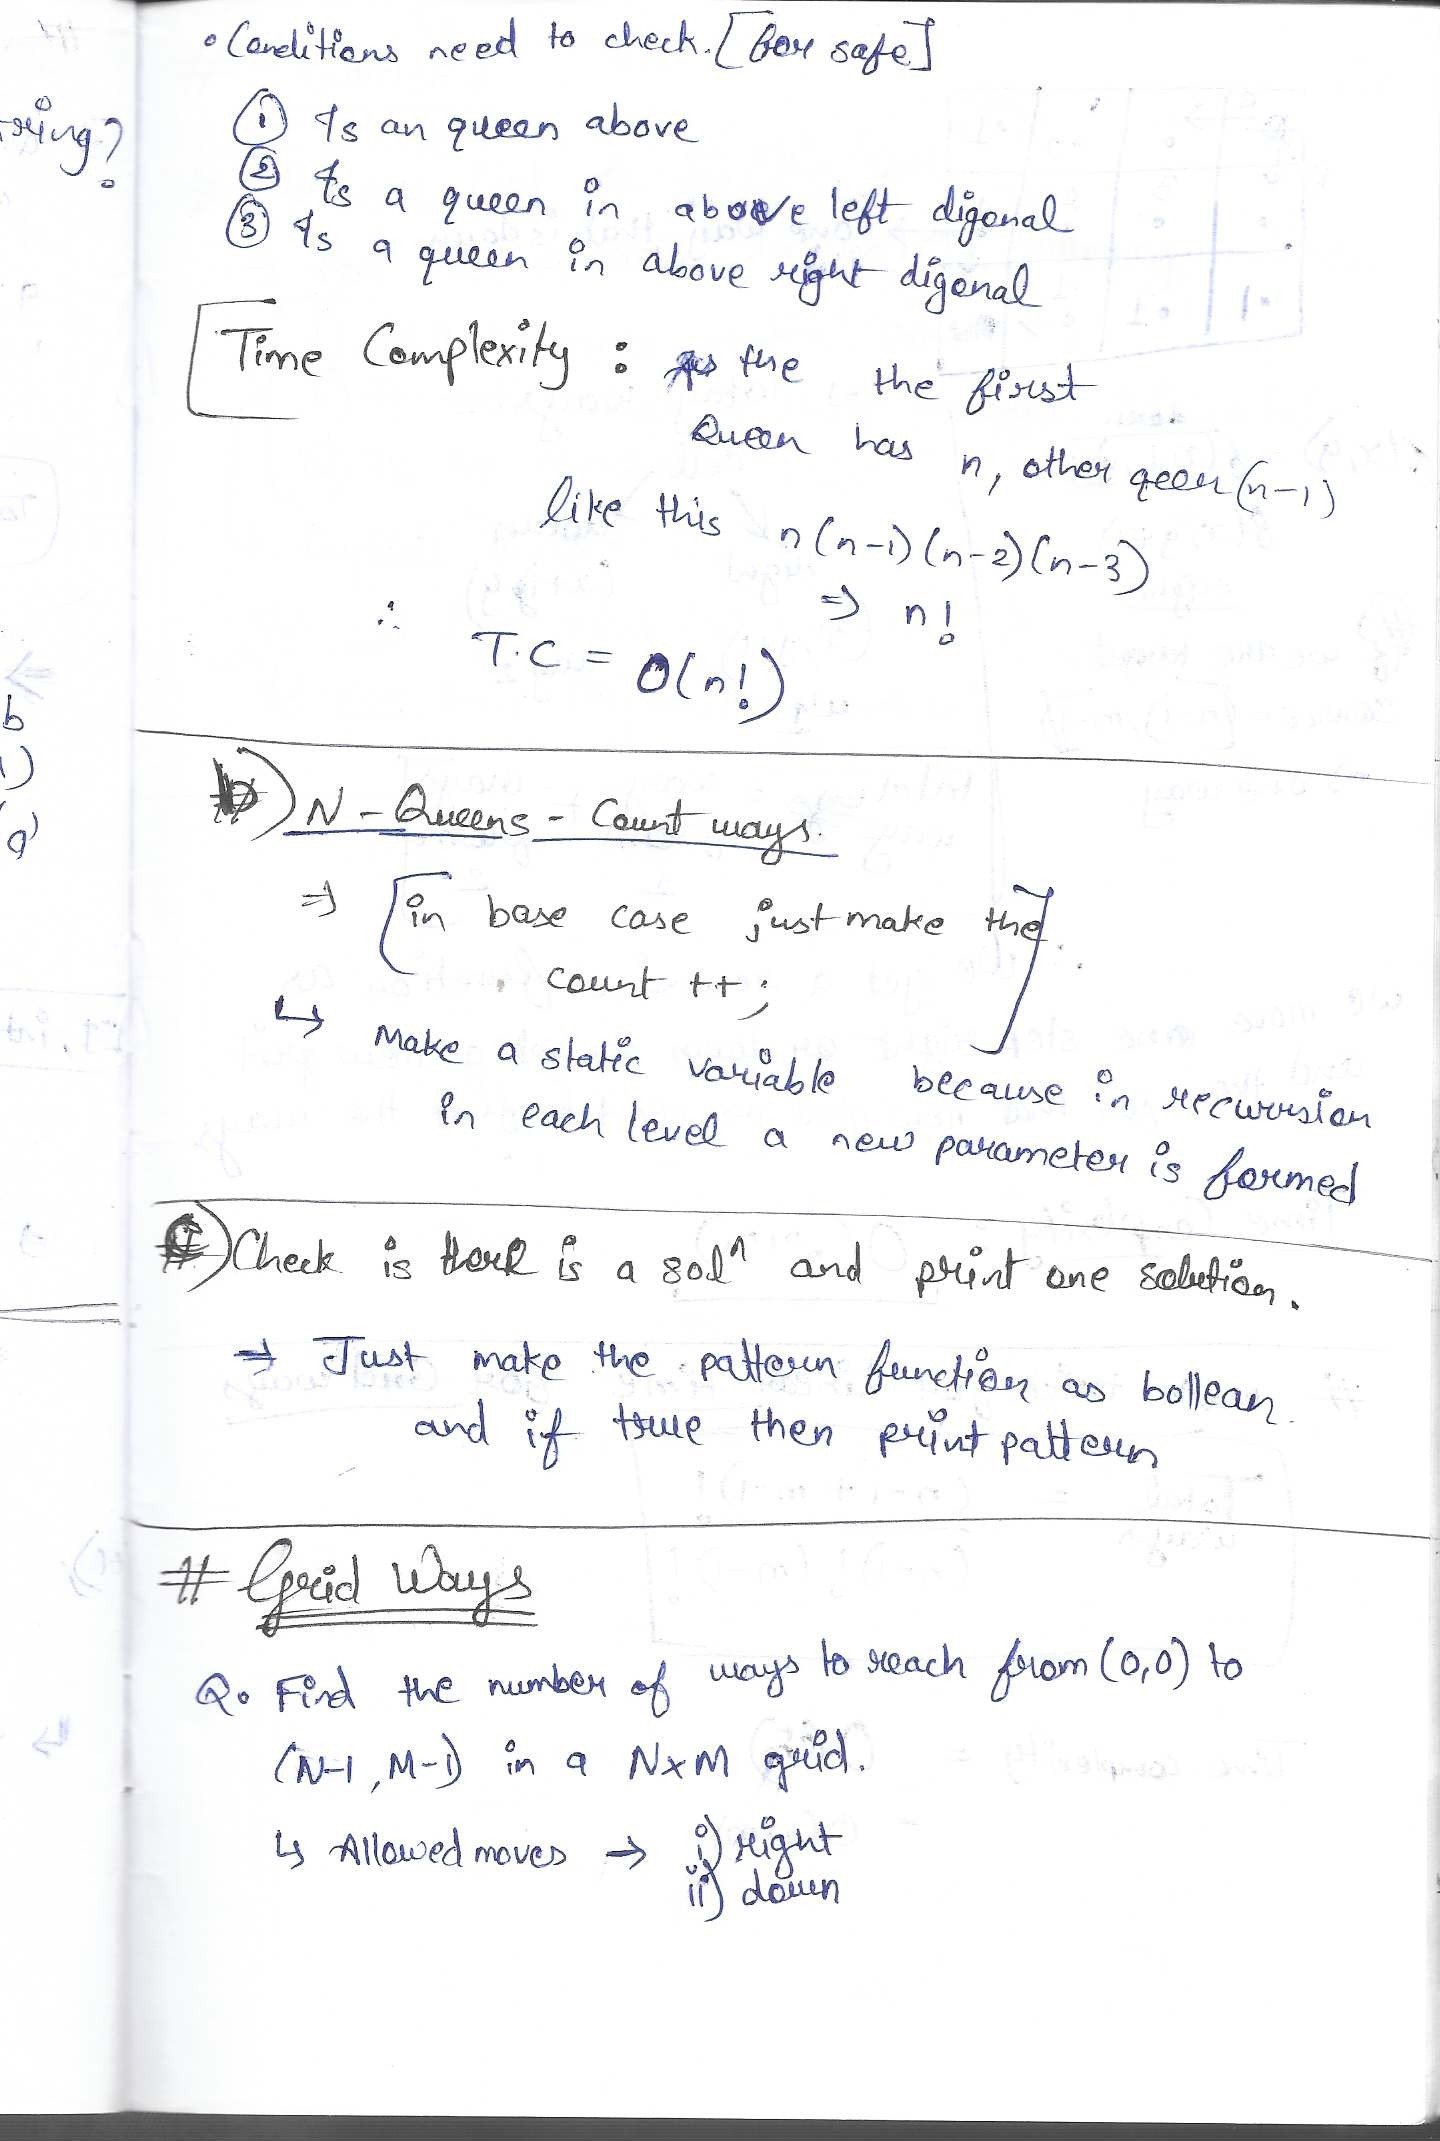 • Conditions need to check. [for safe]
① Is an queen above
② Is a queen in above left digonal
③ Is a queen in above right digonal
Time Complexity : As the the first
Queen has n, other qeen (n-1)
like this n(n-1)(n-2)(n-3)
⇒ n!
∴ T.C = O(n!)
b) N-Queens - Count ways.
⇒ [in base case just make the
count ++;]
↳ Make a static variable because in recurrsion
in each level a new parameter is formed
c) Check is there is a solⁿ and print one solution.
⇒ Just make the pattern function as bollean
and if true then print pattern
# Grid Ways
Q. Find the number of ways to reach from (0,0) to
(N-1, M-1) in a N×M grid.
↳ Allowed moves → i) right
ii) down
tring?
b